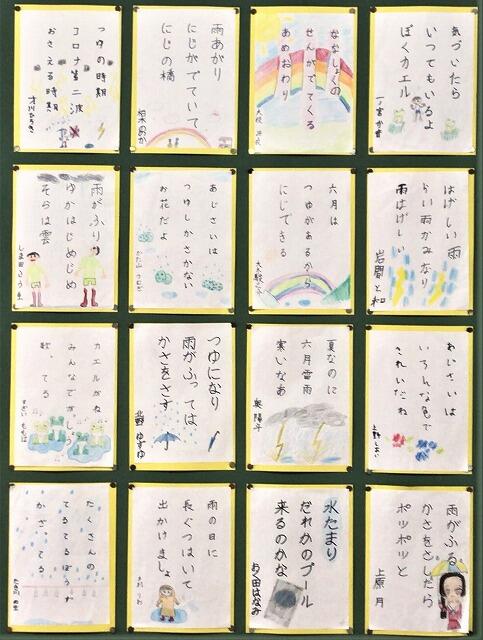 気づいたら
いつでもいるよ
ぼくカエル
なないしょくの
せんがでてくる
あめおわり
雨あがり
にじがでていて
にじの橋
つゆの時期
コロナ第二波
おさえる時期
はげしい雨
らい雨かみなり
雨はげしい
六月は
つゆがあるから
にじできる
あじさいは
つゆしかさかない
お花だよ
雨がふり
ゆかはじめじめ
そらは雲
あじさいは
いろんな色で
きれいだね
上野
夏なのに
六月雷雨
寒いなあ
奥 陽斗
つゆになり
雨がふっては
かさをさす
北野 ゆずゆ
カエルがね
みんなでがっしょう
歌ってる
雨がふる
かさをさしたら
ポツポツと
上原 月
水たまり
だれかのプール
来るのかな
おく田はなみ
雨の日に
長ぐつはいて
出かけましょ
たくさんの
てるてるぼうず
かざってる